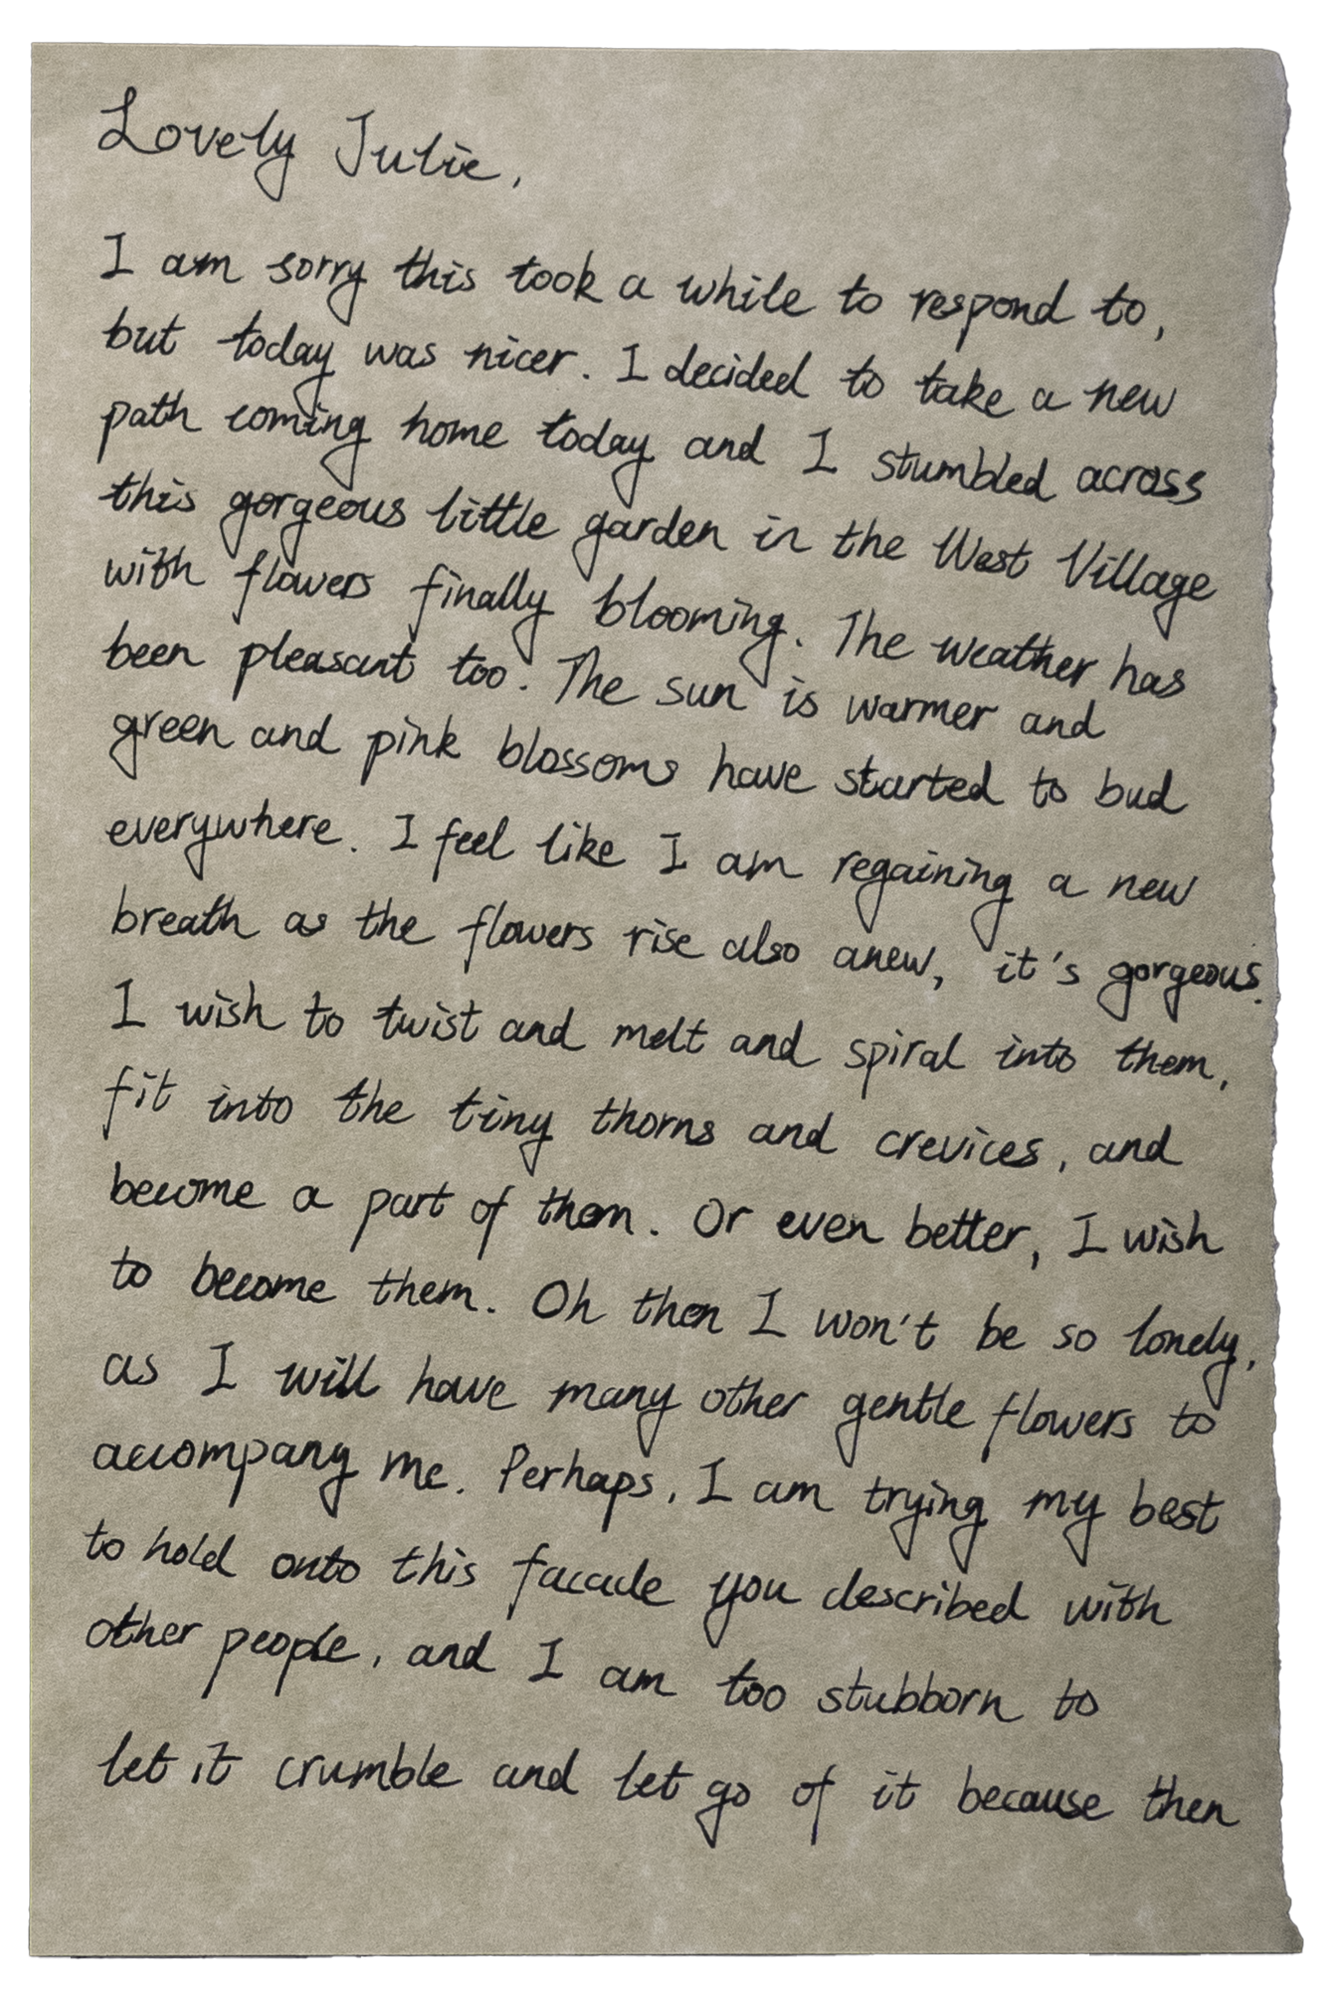 Lovely Julie,
I am sorry this took a while to respond to,
but today was nicer. I decided to take a new
path coming home today and I stumbled across
this gorgeous little garden in the West Village
with flowers finally blooming. The weather has
been pleasant too. The sun is warmer and
green and pink blossoms have started to bud
everywhere. I feel like I am regaining a new
breath as the flowers rise also anew, it's gorgeous.
I wish to twist and melt and spiral into them,
fit into the tiny thorns and crevices, and
become a part of them. Or even better, I wish
to become them. Oh then I won't be so lonely,
as I will have many other gentle flowers to
accompany me. Perhaps, I am trying my best
to hold onto this facade you described with
other people, and I am too stubborn to
let it crumble and let go of it because then